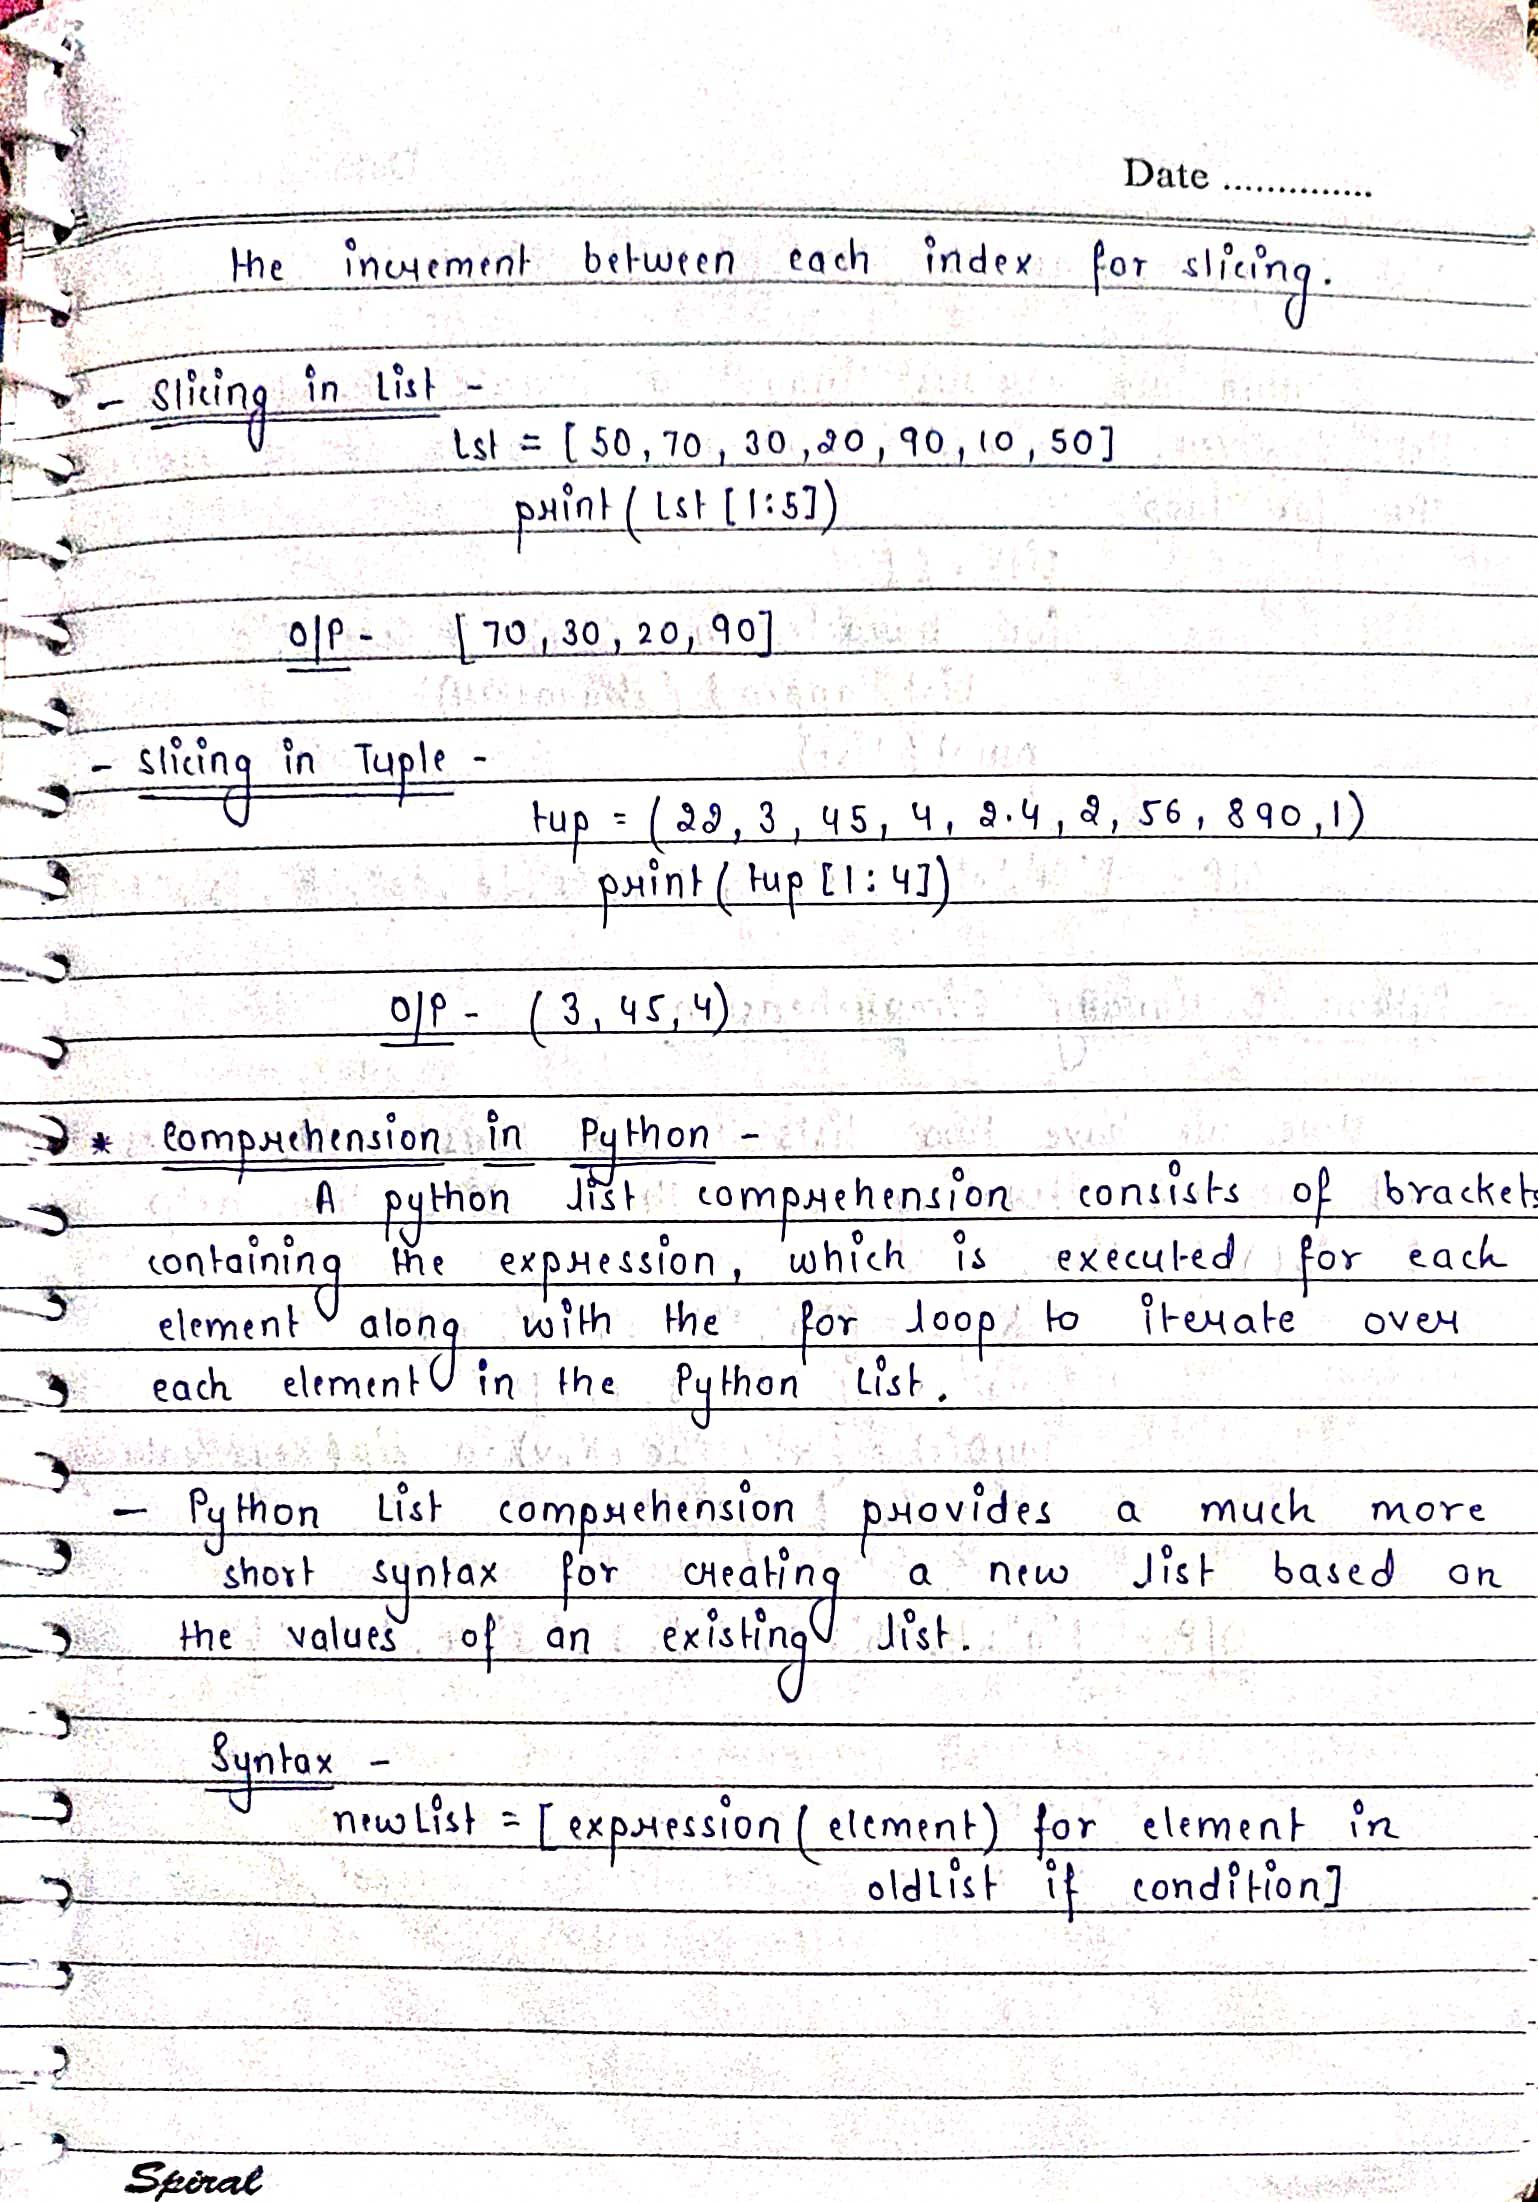 Date ..............
the increment between each index for slicing.
- Slicing in List -
Lst = [50, 70, 30, 20, 90, 10, 50]
print(Lst [1:5])
O/P - [70, 30, 20, 90]
- Slicing in Tuple -
tup = (22, 3, 45, 4, 2.4, 2, 56, 890, 1)
print(tup [1:4])
O/P - (3, 45, 4)
* Comprehension in Python -
A python list comprehension consists of brackets
containing the expression, which is executed for each
element along with the for loop to iterate over
each element in the Python List.
- Python List comprehension provides a much more
short syntax for creating a new list based on
the values of an existing list.
Syntax -
newList = [expression(element) for element in
oldList if condition]
Spiral